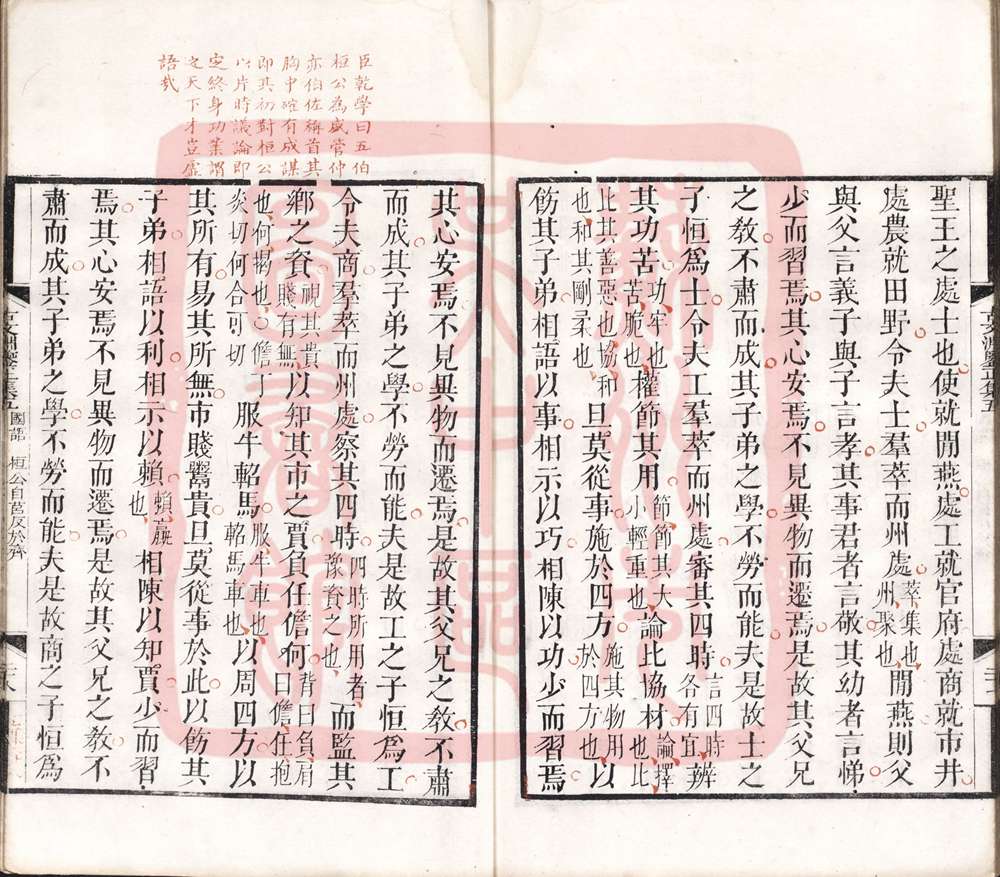 聖王之處士也使就閒燕處工就官府處商就市井
處農就田野令夫士羣萃而州處萃集也州聚也閒燕則父
與父言義子與子言孝其事君者言敬其幼者言悌
少而習焉其心安焉不見異物而遷焉是故其父兄
之敎不肅而成其子弟之學不勞而能夫是故士之
子恒爲士令夫工羣萃而州處審其四時言四時各有宜辨
其功苦功牢也苦脆也權節其用節節其大小輕重也論比協材論擇也比
比其善惡也協和也和其剛柔也旦莫從事施於四方施其物用於四方也以
飭其子弟相語以事相示以巧相陳以功少而習焉
其心安焉不見異物而遷焉是故其父兄之敎不肅
而成其子弟之學不勞而能夫是故工之子恒爲工
令夫商羣萃而州處察其四時四時所用者豫資之也而監其
鄕之資視其貴賤有無以知其市之賈負任儋何背曰負肩曰儋任抱
也何揭也儋丁炎切何合可切服牛軺馬服牛車也軺馬車也以周四方以
其所有易其所無市賤鬻貴旦莫從事於此以飭其
子弟相語以利相示以賴賴贏也相陳以知賈少而習
焉其心安焉不見異物而遷焉是故其父兄之敎不
肅而成其子弟之學不勞而能夫是故商之子恒爲
臣乾學曰五伯
桓公為盛管仲
亦伯佐稱首其
胸中確有成謀
即其初對桓公
以片時議論即
定終身功業謂
之天下才豈虛
語哉
國語
桓公自莒反於齊